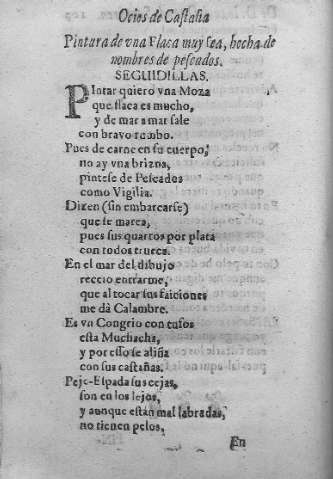 Ocios de Castalia
Pintura de vna Flaca muy fea, hecha de
nombres de pescados.
SEGUIDILLAS.
PIntar quiero vna Moza
que flaca es mucho,
y de mar a mar sale
con bravo rumbo.
Pues de carne en su cuerpo,
no ay vna brizna,
pintese de Pescados
como Vigilia.
Dizen (sin embarcarse)
que se marea,
pues sus quartos por plata
con todos trueca.
En el mar del dibujo
recelo entrarme,
que al tocar sus faiciones
me dà Calambre.
Es vn Congrio con tufos
esta Muchacha,
y por esso se alisa
con sus castañas.
Peje-Espada sus cejas,
son en los lejos,
y aunque están mal labradas,
no tienen pelos,
En